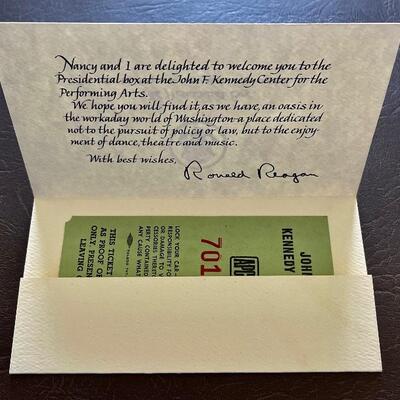 Nancy and I are delighted to welcome you to the
Presidential box at the John F. Kennedy Center for the
Performing Arts.
We hope you will find it, as we have, an oasis in
the workaday world of Washington-a place dedicated
not to the pursuit of policy or law, but to the enjoy-
ment of dance, theatre and music.
With best wishes,
Ronald Reagan
THIS TICKET
AS PROOF O
ONLY. PRESEN
LEAVING
LOCK YOUR CAR
RESPONSIBILITY FO
OR DAMAGE TO V
CESSORIES THERET
PERTY CONTAINED
ANY CAUSE WHAT
701
APC
JOHN
KENNEDY